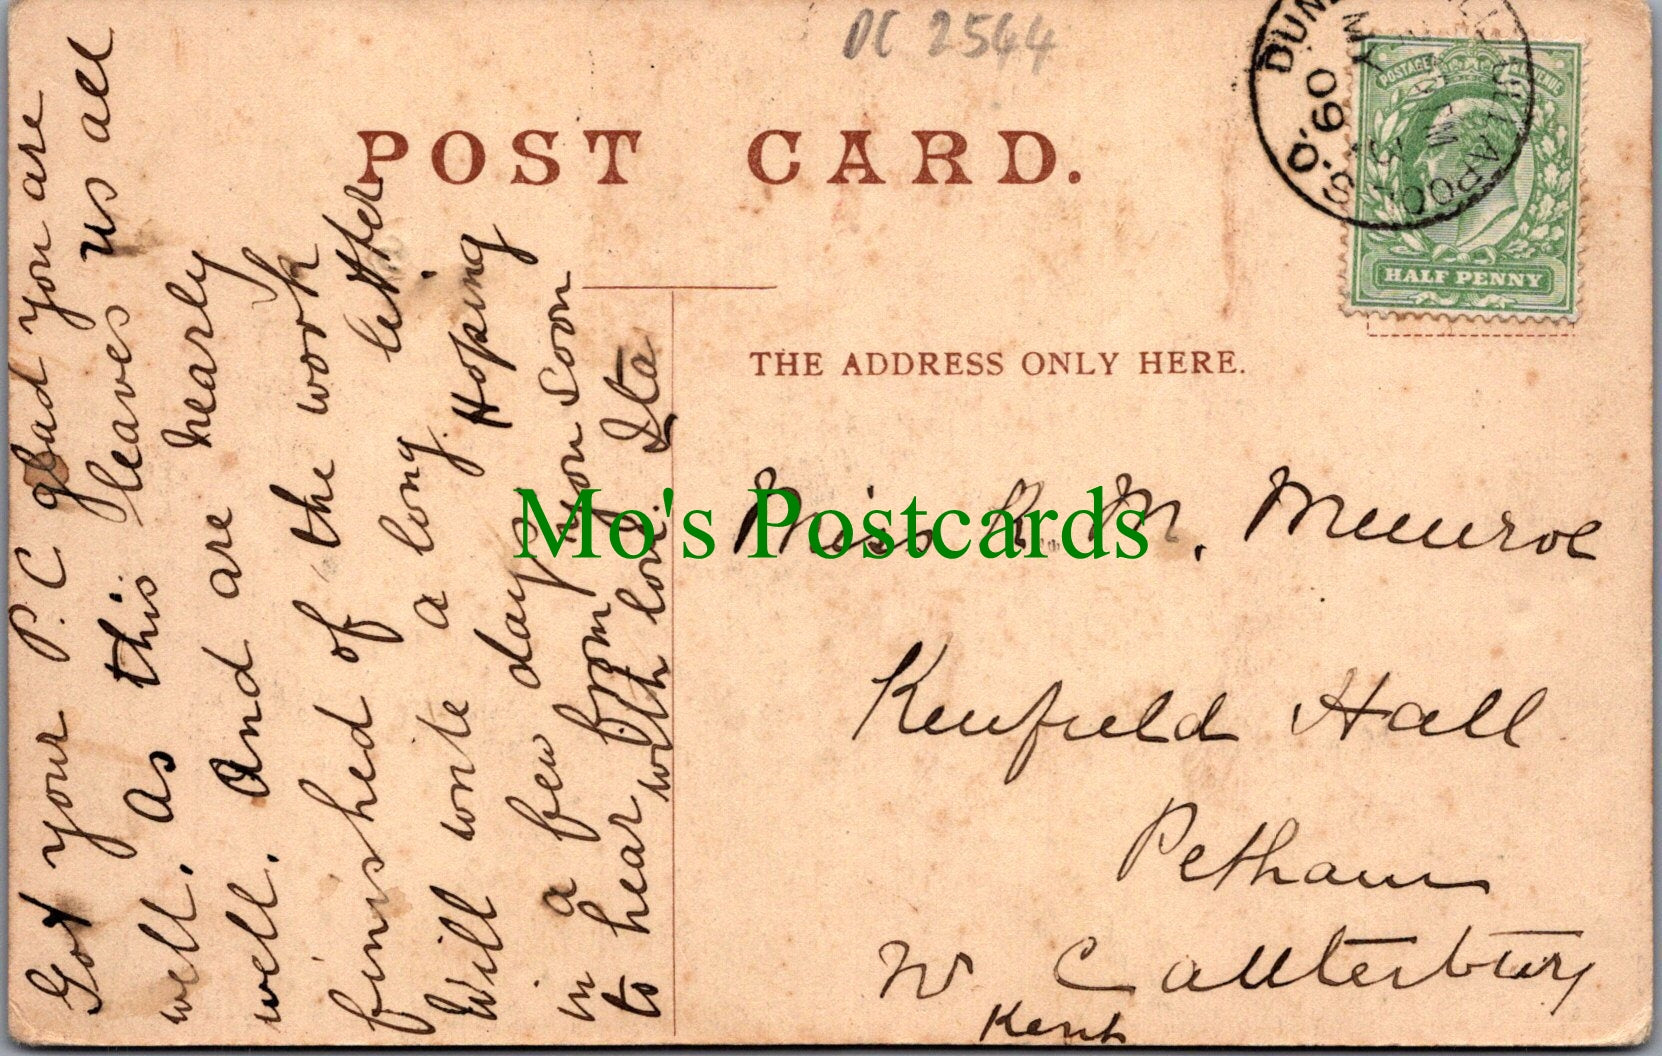 DC 2544
POST CARD.
DUN
S.O.
MY
09
ULLAPOOL
POSTAGE
HALF PENNY
THE ADDRESS ONLY HERE.
Mo's Postcards
Miss R. M. Munroe
Kenfield Hall
Petham
Nr Canterbury
Kent
Got your P.C glad you are
well. As this leaves us all
well. And are nearly
finished of the work
Will write a long letter
in a few days. Hoping
to hear from you Soon
with love. Ita